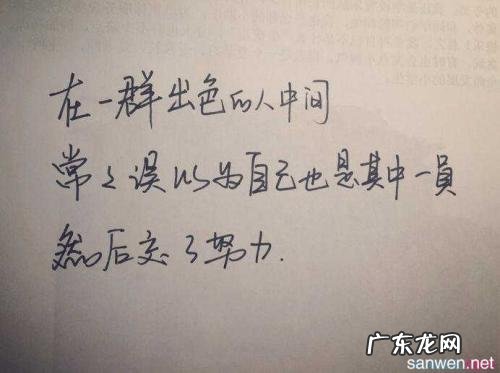 在一群出色的人中间
常々误以为自己也是其中一員
然后忘了努力.
广东龙网
sanwen.net